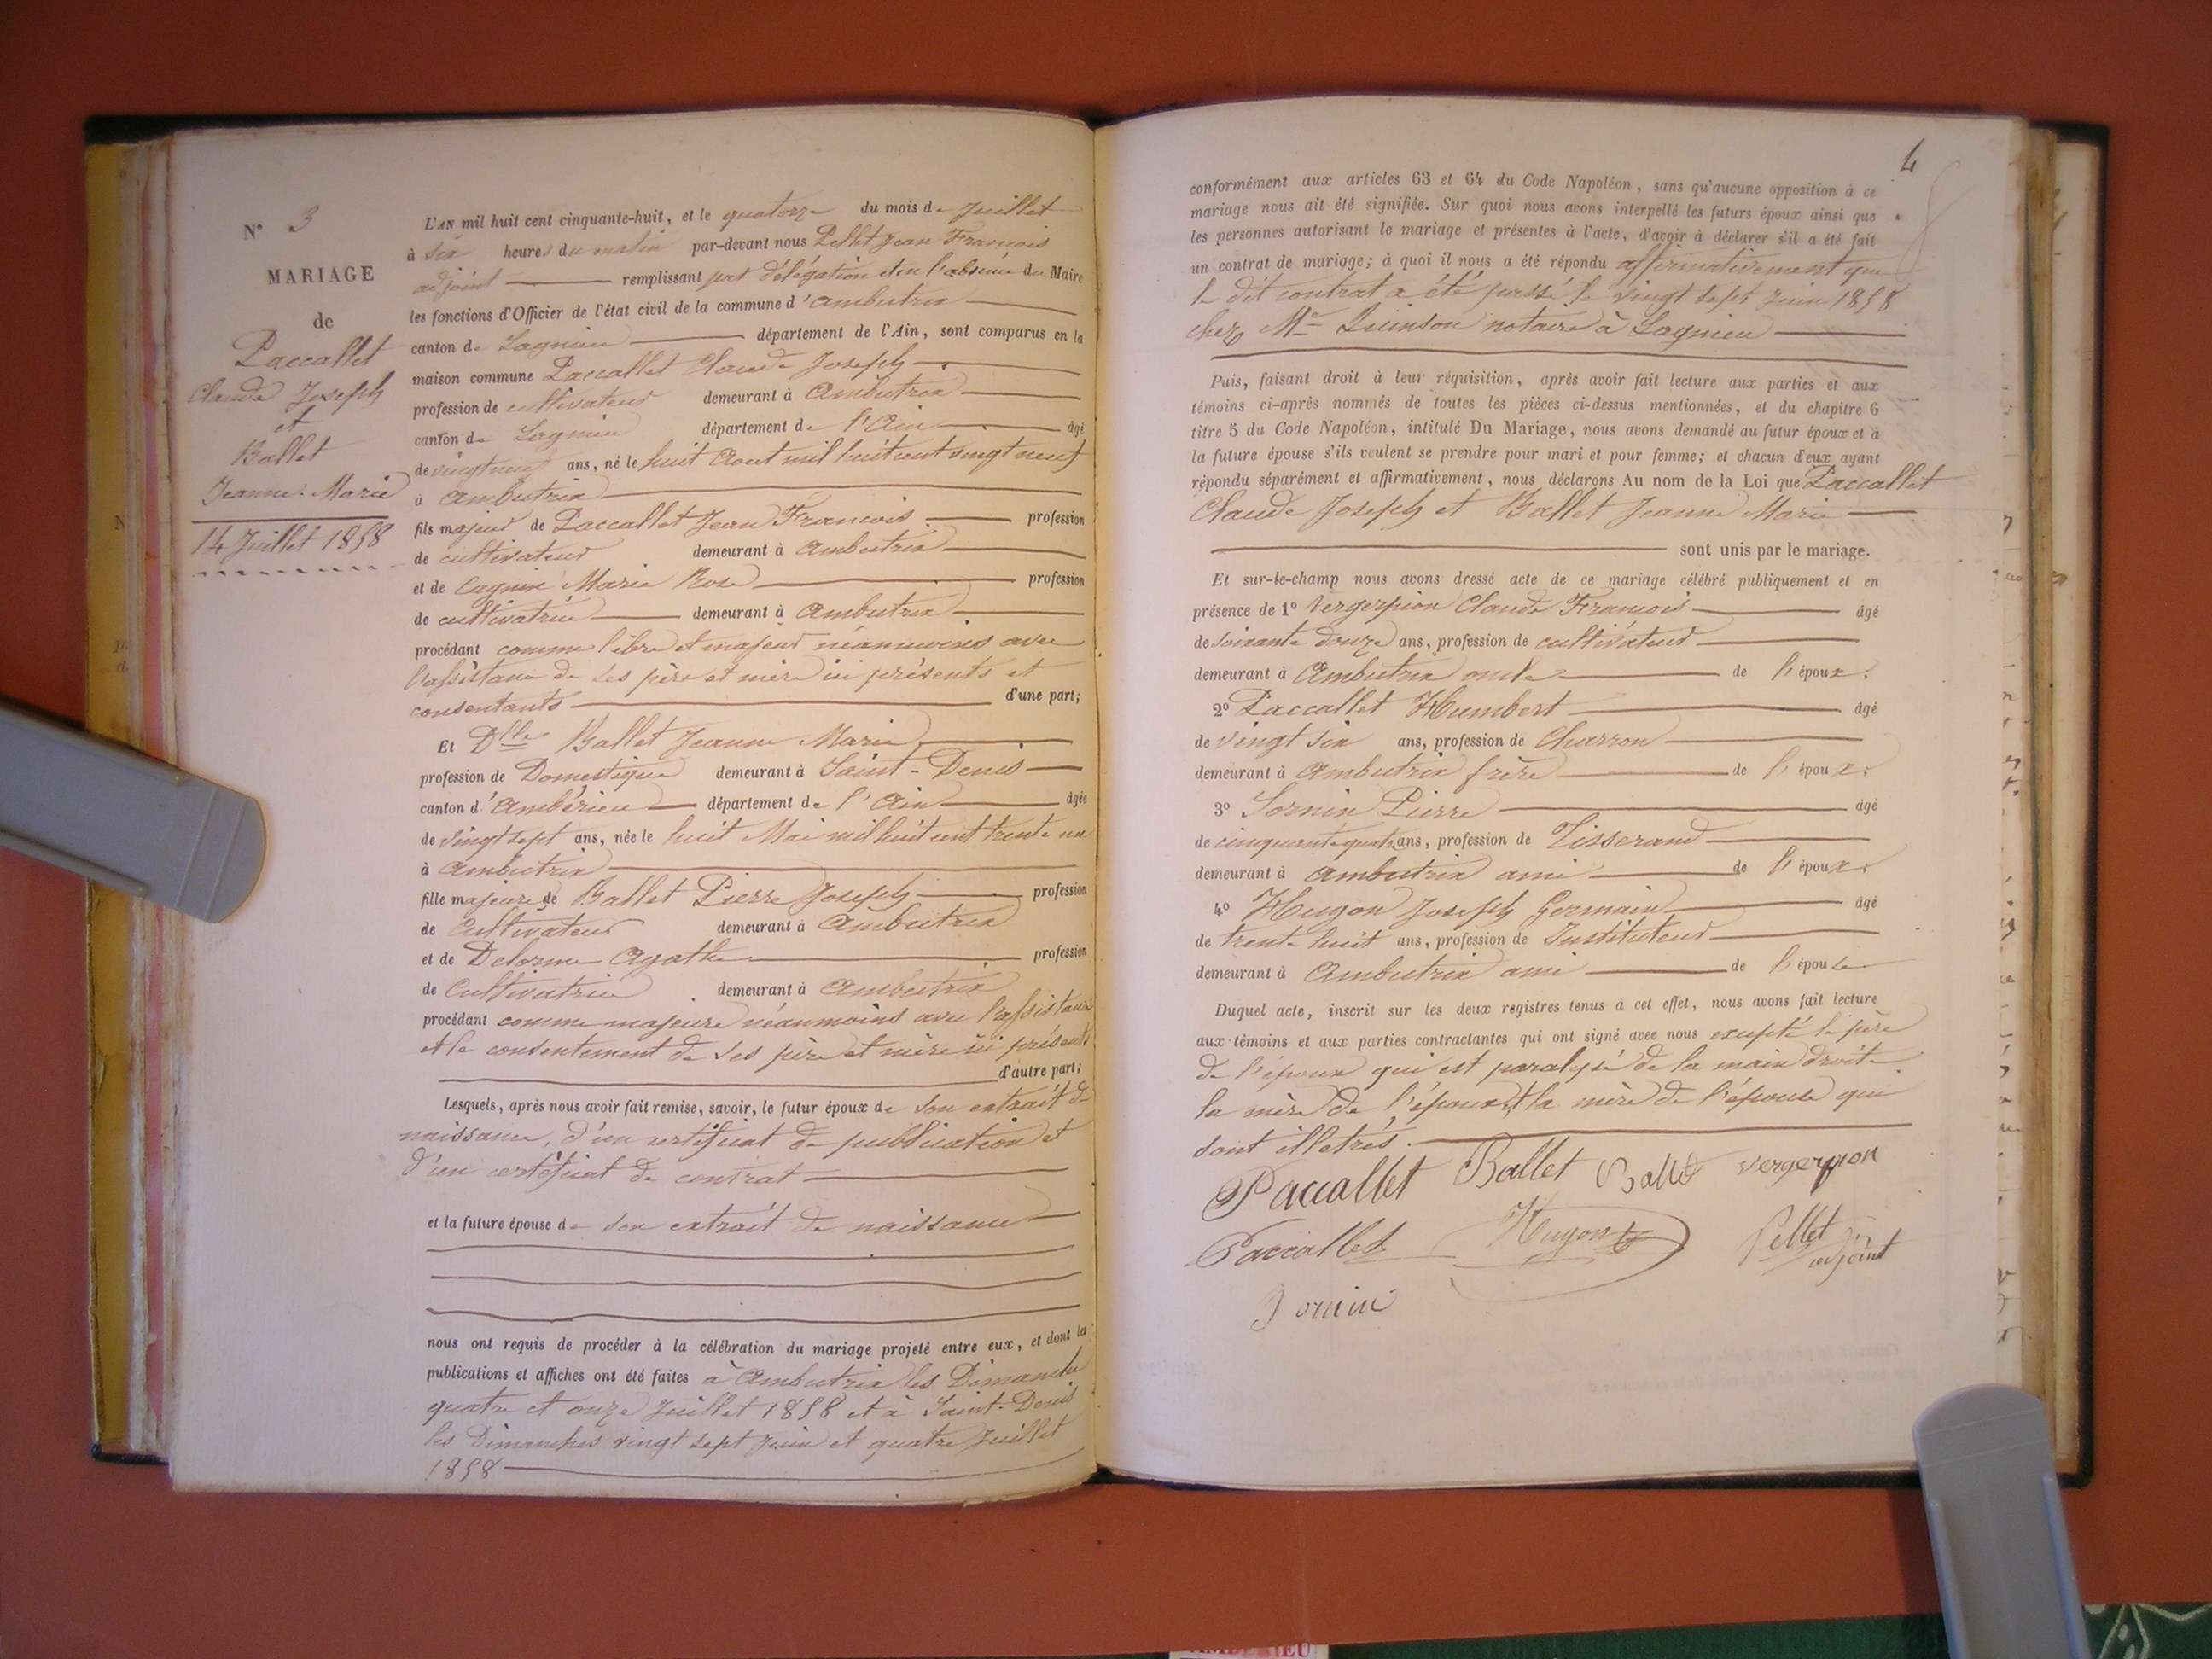 N° 3
MARIAGE
de
Paccallet
Claude Joseph
et
Ballet
Jeanne Marie
14 Juillet 1858
L'AN mil huit cent cinquante-huit, et le quatorze du mois de Juillet
à six heures du matin par-devant nous Pellet Jean François
adjoint remplissant par délégation et en l'absence du Maire
les fonctions d'Officier de l'état civil de la commune d'Ambutrix
canton de Lagnieu département de l'Ain, sont comparus en la
maison commune Paccallet Claude Joseph
profession de cultivateur demeurant à Ambutrix
canton de Lagnieu département de l'Ain âgé
de vingt neuf ans, né le huit Aout mil huit cent vingt neuf
à Ambutrix
fils majeur de Paccallet Jean François profession
de cultivateur demeurant à Ambutrix
et de Cagnin Marie Rose profession
de cultivatrice demeurant à Ambutrix
procédant comme libre et majeur néanmoins avec
l'assistance de ses père et mère ici présents et
consentants d'une part;
Et Dlle Ballet Jeanne Marie
profession de Domestique demeurant à Saint-Denis
canton d'Ambérieu département de l'Ain âgée
de vingt sept ans, née le huit Mai mil huit cent trente un
à Ambutrix
fille majeure de Ballet Pierre Joseph profession
de Cultivateur demeurant à Ambutrix
et de Delorme Agathe profession
de Cultivatrice demeurant à Ambutrix
procédant comme majeure néanmoins avec l'assistance
et le consentement de ses père et mère ici présents
d'autre part;
Lesquels, après nous avoir fait remise, savoir, le futur époux de son extrait de
naissance, d'un certificat de publication et
d'un certificat de contrat
et la future épouse de son extrait de naissance
nous ont requis de procéder à la célébration du mariage projeté entre eux, et dont les
publications et affiches ont été faites à Ambutrix les Dimanche
quatre et onze Juillet 1858 et à Saint-Denis
les Dimanches vingt sept Juin et quatre Juillet
1858
4
conformément aux articles 63 et 64 du Code Napoléon, sans qu'aucune opposition à ce
mariage nous ait été signifiée. Sur quoi nous avons interpellé les futurs époux ainsi que
les personnes autorisant le mariage et présentes à l'acte, d'avoir à déclarer s'il a été fait
un contrat de mariage; à quoi il nous a été répondu affirmativement que
le dit contrat a été passé le vingt sept Juin 1858
chez Me Quinson notaire à Lagnieu
Puis, faisant droit à leur réquisition, après avoir fait lecture aux parties et aux
témoins ci-après nommés de toutes les pièces ci-dessus mentionnées, et du chapitre 6
titre 5 du Code Napoléon, intitulé Du Mariage, nous avons demandé au futur époux et à
la future épouse s'ils veulent se prendre pour mari et pour femme; et chacun d'eux ayant
répondu séparément et affirmativement, nous déclarons Au nom de la Loi que Paccallet
Claude Joseph et Ballet Jeanne Marie
sont unis par le mariage.
Et sur-le-champ nous avons dressé acte de ce mariage célébré publiquement et en
présence de 1° Vergerpion Claude François âgé
de soixante douze ans, profession de cultivateur
demeurant à Ambutrix oncle de l'époux.
2° Paccallet Humbert âgé
de vingt six ans, profession de Charron
demeurant à Ambutrix frère de l'époux.
3° Sornin Pierre âgé
de cinquante quatre ans, profession de Tisserand
demeurant à Ambutrix ami de l'époux.
4° Hugon Joseph Germain âgé
de trente huit ans, profession de Instituteur
demeurant à Ambutrix ami de l'épouse
Duquel acte, inscrit sur les deux registres tenus à cet effet, nous avons fait lecture
aux témoins et aux parties contractantes qui ont signé avec nous excepté le père
de l'époux qui est paralysé de la main droite
la mère de l'époux et la mère de l'épouse qui
sont illetrés.
Paccallet Ballet Ballet vergerpion
Paccallet Hugon Pellet
adjoint
Sornin